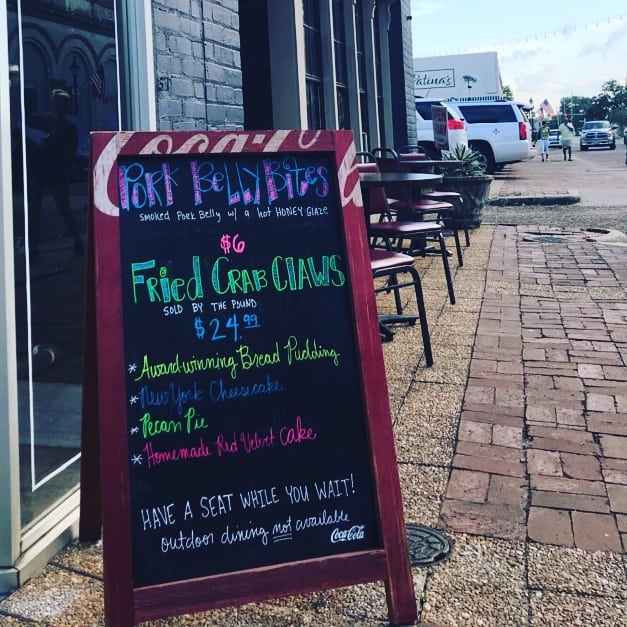 Coca-Cola
Pork Belly Bites
smoked Pork Belly w/ a hot HONEY GLaze
$6
Fried Crab Claws
SOLD BY THE POUND
$24.99
*Award-winning Bread Pudding
*New York Cheesecake
*Pecan Pie
*Homemade Red Velvet Cake
HAVE A SEAT WHILE YOU WAIT!
outdoor dining not available
Coca-Cola
Patina's